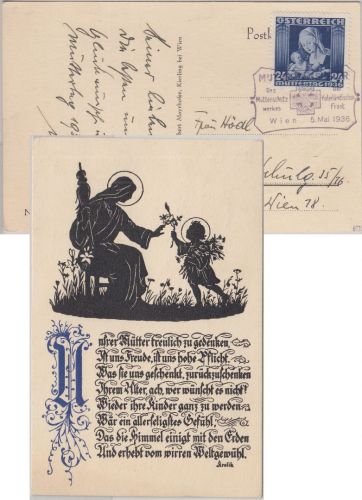 Meiner lieben
die besten und
Glückwünsche
Muttertag 19
bert Alterdorfer, Kierling bei Wien
Postk
ÖSTERREICH
24 24
MUTTERTAG 1936
MU
Des
Mutterschutz
werkes
Vaterländischen
Front
Wien 5. Mai 1936
Frau Hödl
Wien 18.
Unsrer Mütter treulich zu gedenken,
Ist uns Freude, ist uns hohe Pflicht.
Was sie uns geschenkt, zurückzuschenken
Ihrem Alter, ach, wer wünscht es nicht?
Wieder ihre Kinder ganz zu werden
Wär ein allerseligstes Gefühl,
Das die Himmel einigt mit den Erden
Und erhebt vom wirren Weltgewühl.
Kralik